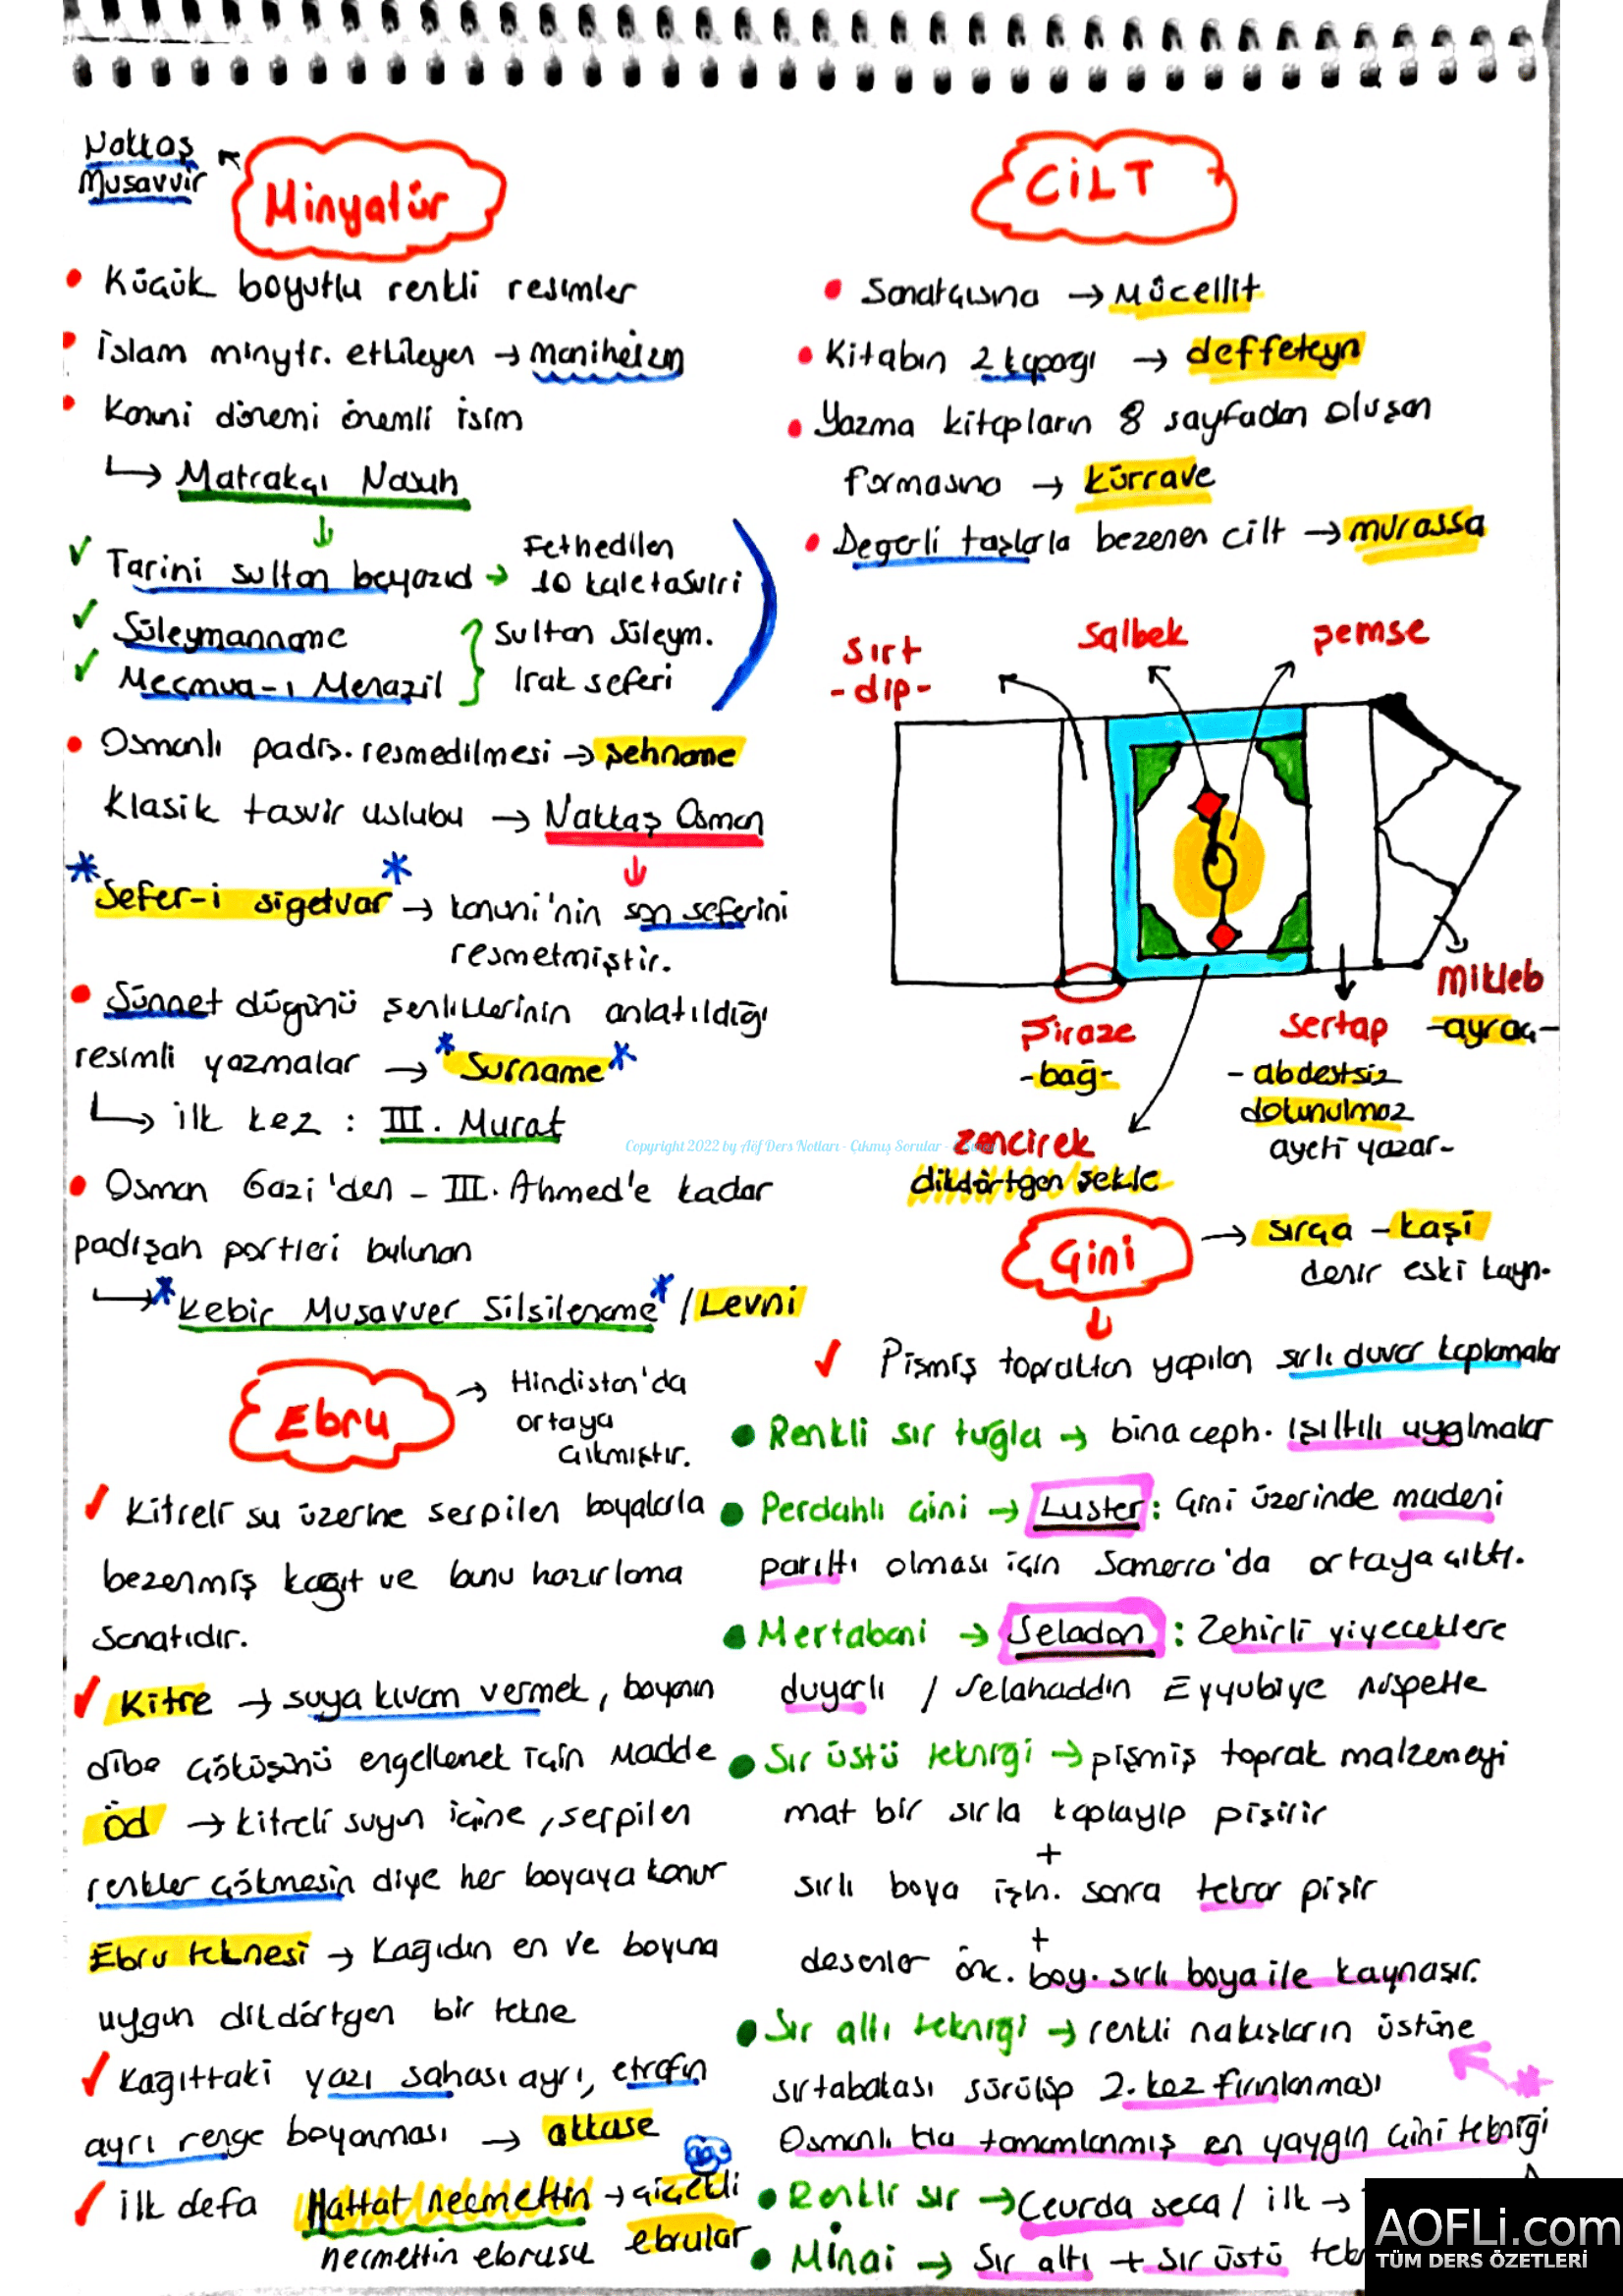 Nakkaş
Musavvir
Minyatür
Küçük boyutlu renkli resimler
İslam minytr. etkileyen → maniheizm
Kanuni dönemi önemli isim
↳ Matrakçı Nasuh
Tarihi sultan beyazıd → Fethedilen
10 kale tasviri
Süleymanname
Mecmua-ı Menazil
Sultan Süleym.
Irak seferi
Osmanlı padiş. resmedilmesi → şehname
Klasik tasvir uslubu → Nakkaş Osman
Sefer-i sigetvar → kanuni'nin son seferini
resmetmiştir.
Sünnet düğünü şenliklerinin anlatıldığı
resimli yazmalar → Surname
↳ ilk kez : III. Murat
Osman Gazi'den - III. Ahmed'e kadar
padişah portleri bulunan
↳ Kebir Musavver Silsilename / Levni
Ebru → Hindistan'da
ortaya
çıkmıştır.
Kitreli su üzerine serpilen boyalarla
bezenmiş kağıt ve bunu hazırlama
sanatıdır.
Kitre → suya kıvam vermek, boyanın
dibe çöküşünü engellemek için madde
Öd → kitreli suyun içine, serpilen
renkler çökmesin diye her boyaya konur
Ebru teknesi → Kağıdın en ve boyuna
uygun dikdörtgen bir tekne
Kağıttaki yazı sahası ayrı, etrafın
ayrı renge boyanması → akkase
ilk defa Hattat necmettin → çiçekli
ebrular
necmettin ebrusu
CİLT
Sanatçısına → Mücellit
Kitabın 2 kapağı → deffeteyn
Yazma kitapların 8 sayfadan oluşan
formasına → kürrave
Değerli taşlarla bezenen cilt → murassa
Sırt
-dip-
Salbek
şemse
Mikleb
-ayraç-
Şiraze
-bağ-
Sertap
-abdestsiz
dokunulmaz
ayeti yazar-
Zencirek
dikdörtgen şekle
Copyright 2022 by Aöf Ders Notları - Çıkmış Sorular -
Çini → sırça - kaşi
denir eski kayn.
Pişmiş topraktan yapılan sırlı duvar kaplamalar
Renkli sır tuğla → bina ceph. ışıltılı uyglmalar
Perdahlı çini → Luster : Çini üzerinde madeni
parıltı olması için Samerra'da ortaya çıktı.
Mertabani → Seladon : Zehirli yiyeceklere
duyarlı / Selahaddin Eyyubiye nispetle
Sır üstü tekniği → pişmiş toprak malzemeyi
mat bir sırla kaplayıp pişirir
+
sırlı boya işln. sonra tekrar pişir
+
desenler önc. boy. sırlı boya ile kaynaşır.
Sır altı tekniği → renkli nakışların üstüne
sır tabakası sürülüp 2. kez fırınlanması
Osmanlı da tamamlanmış en yaygın çini tekniği
Renkli sır → Ceurda seca / ilk →
Minai → Sır altı + sır üstü
AOFLi.com
TÜM DERS ÖZETLERİ